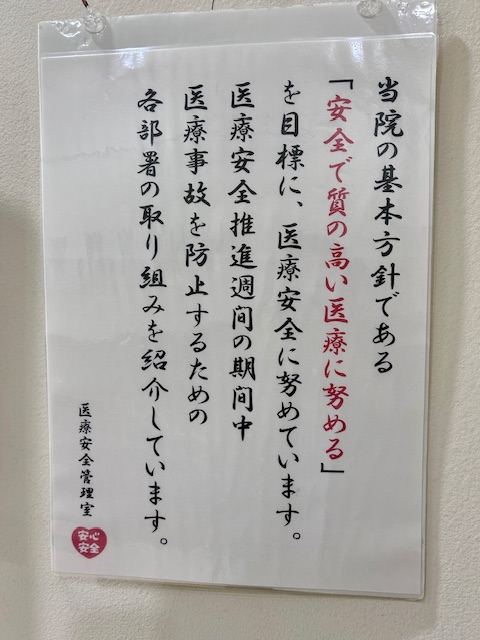 当院の基本方針である
「安全で質の高い医療に努める」
を目標に、医療安全に努めています。
医療安全推進週間の期間中
医療事故を防止するための
各部署の取り組みを紹介しています。
医療安全管理室
安心
安全